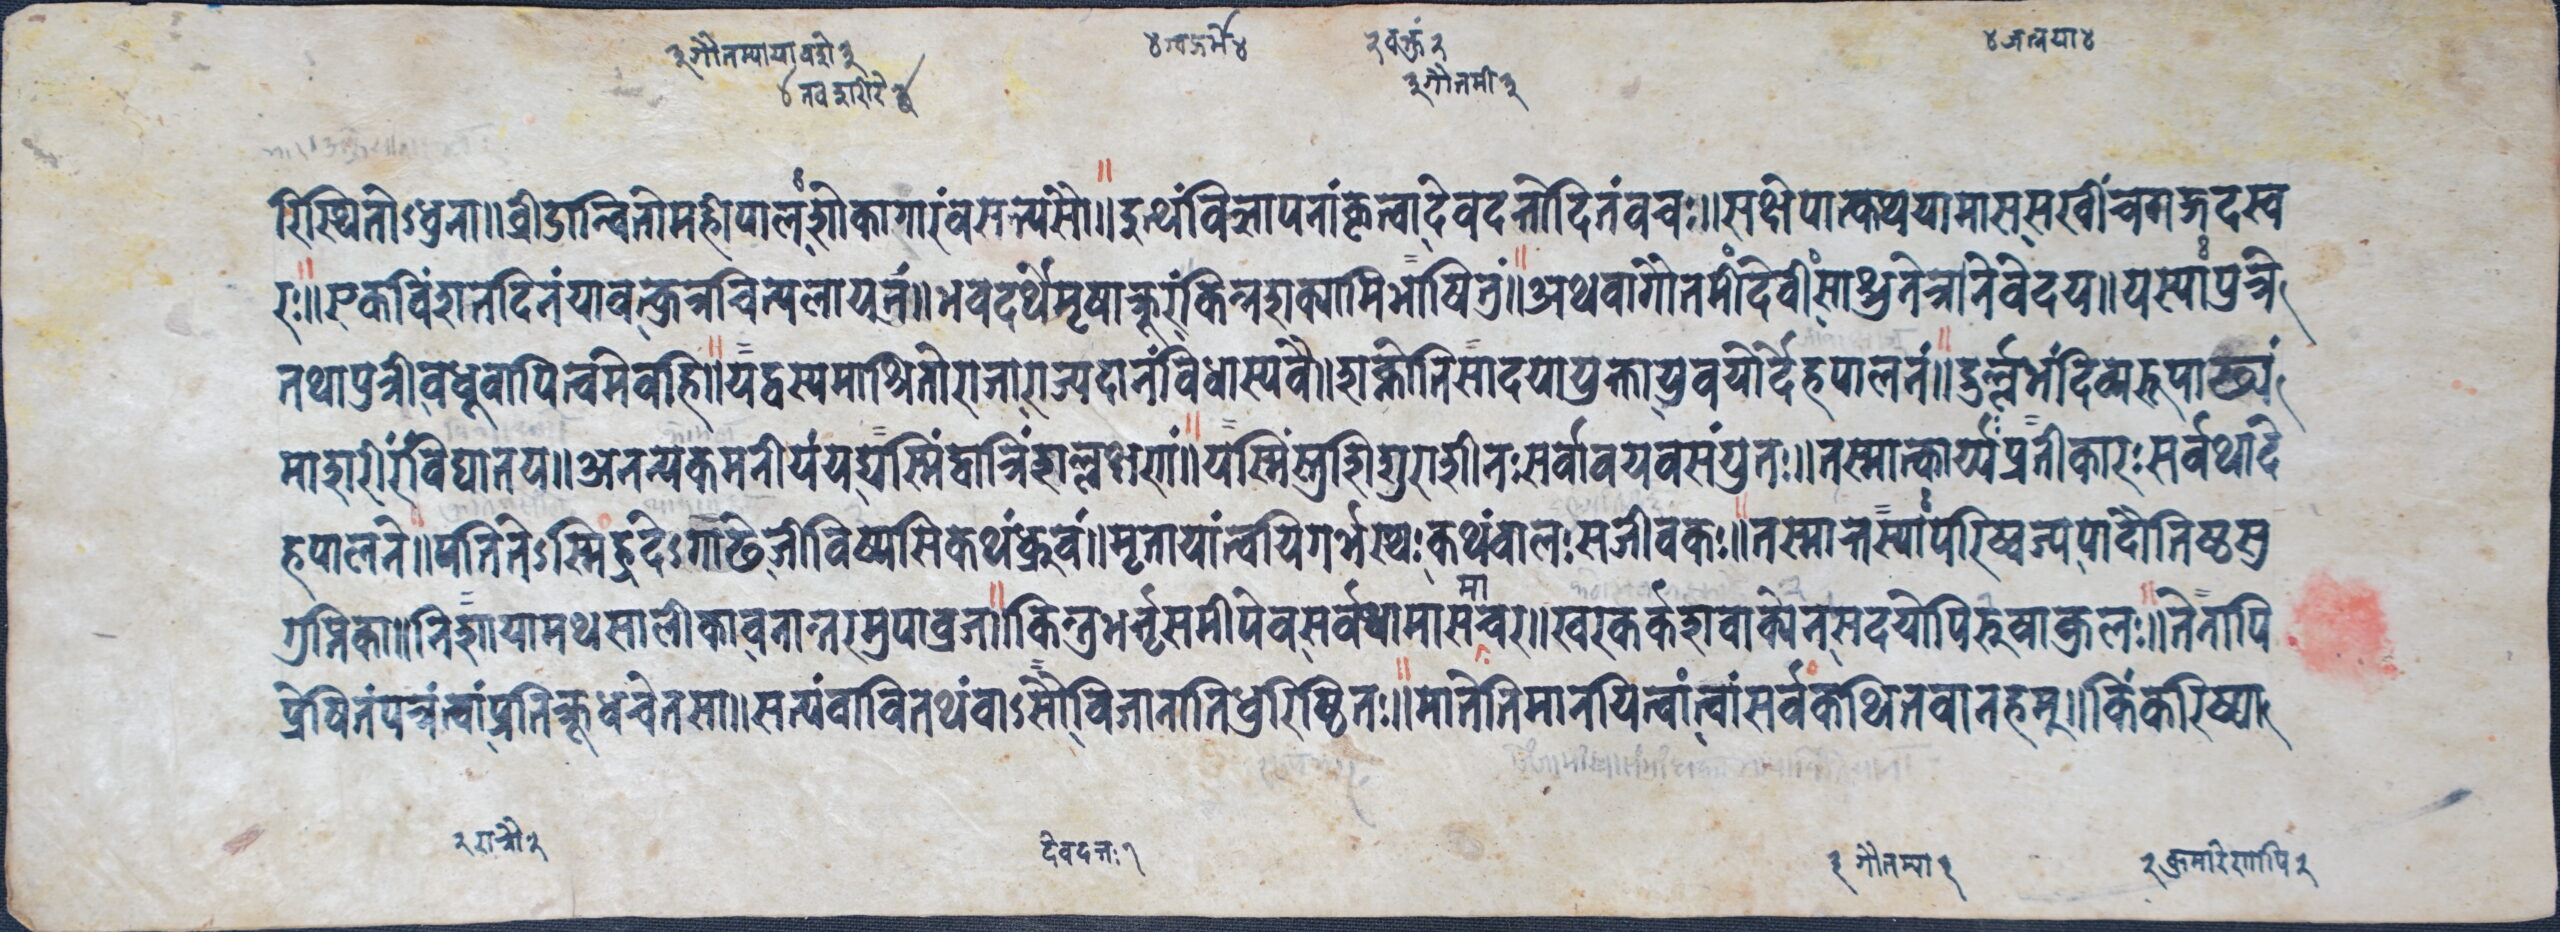 ३गौतम्यायावदी३ ४त्वग्जर्मे४ २वक्तुं२ ४जत्नया४
४तवशरीरे४ ३गौतमी३
रिस्थितोऽधुना॥व्रीडान्वितोमहीपालःशोकागारंवसत्यसौ॥इत्थंविलापनांकृत्वादेवदत्तोदितंवचः॥संक्षेपात्कथयामाससखींचगद्गदस्व
रः॥एकविंशतदिनंयावत्कुत्रचित्पलायतुं॥भवदर्थेमृषाक्रूरंकिन्नशक्यामिभाषितुं॥अथवागौतमींदेवींसाश्रुनेत्रानिवेदय॥यस्याःपुत्रो
तथापुत्रीवधूवापित्वमेवहि॥यद्वस्यमाश्रितोराजाराज्यदानंविधास्यवै॥शक्नोतिसादयायुक्तायुवयोर्देहपालनं॥दुर्ल्लभंदिव्यरूपाढ्यं
माशरीरंविघातय॥अनन्यकमनीयंयद्यस्मिंद्वात्रिंशल्लक्षणं॥यस्मिंस्तुद्विगुराशीतःसर्वावयवसंयुतः॥तस्मात्कार्य्यःप्रतीकारःसर्वथादे
हपालने॥पतितेऽस्मिह्रदेऽगाढेजीविष्यसिकथंध्रुवं॥मृतायांत्वयिगर्भस्थःकथंबालःसजीवकः॥तस्मात्तस्याःपरिष्वज्यपादौतिष्ठसु
गुप्तिका॥निशायामथसालीकावनान्तरमुपाव्रज॥किन्तुभर्त्तृसमीपेवसर्वथामामासञ्चर॥खरकर्कशवाक्येनसदयोपिरुषाकुलः॥तेनापि
प्रेषितंपत्रंत्वांप्रतिक्रूधचेतसा॥सत्यंवावितथंवाऽसौविजानातिधुरिष्ठितः॥मातेतिमानयित्वांत्वांसर्वंकथितवानहम्॥किंकरिष्या
२रात्रौ२ देवदत्तः१ ३गौतम्या३ २कुमारेणापि२